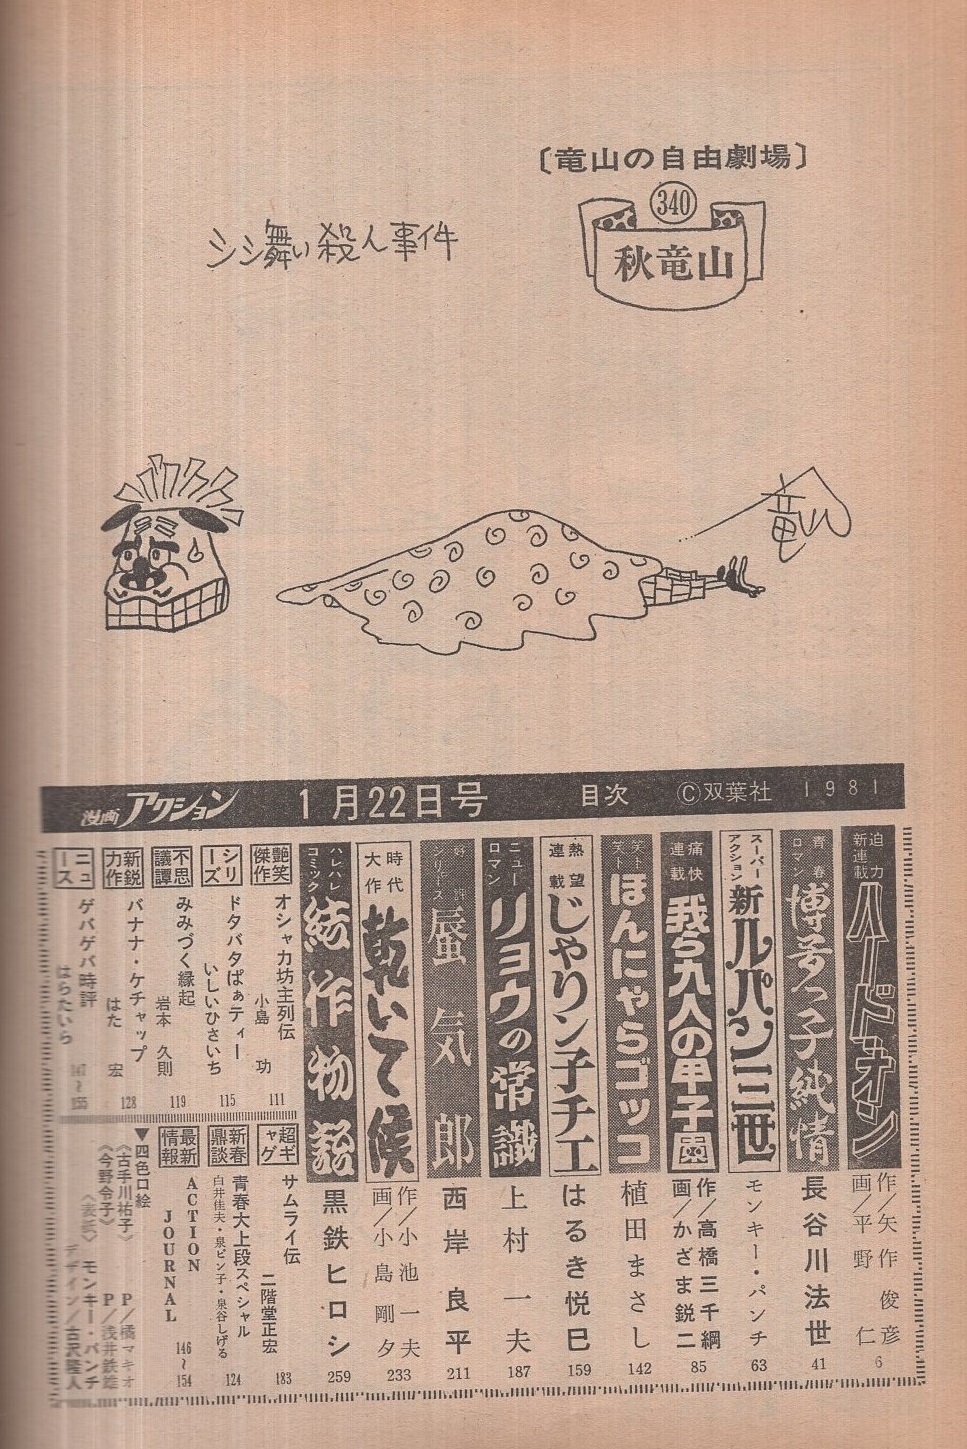 〔竜山の自由劇場〕
340
秋竜山
シシ舞い殺人事件
竜山
漫画アクション 1月22日号 目次 ©双葉社 1981
迫力新連載 ハードオン 作／矢作俊彦 画／平野仁 6
青春ロマン 博多っ子純情 長谷川法世 41
スーパーアクション 新ルパン三世 モンキー・パンチ 63
痛快連載 我ら九人の甲子園 作／高橋三千綱 画／かざま鋭二 85
ほんにゃらゴッコ 植田まさし 142
熱望連載 じゃりン子チエ はるき悦巳 159
ニューロマン リョウの常識 上村一夫 187
蜃気郎 西岸良平 211
時代大作 乾いて候 作／小池一夫 画／小島剛夕 233
ハレハレコミック 結作物語 黒鉄ヒロシ 259
艶笑傑作 オシャカ坊主列伝 小島功 111
シリーズ ドタバタぱぁティー いしいひさいち 115
不思議譚 みみづく縁起 岩本久則 119
新鋭力作 バナナ・ケチャップ はた宏 128
ニュース ゲバゲバ時評 はらたいら 147〜155
超ギャグ サムライ伝 二階堂正宏 183
新春鼎談 青春大上段スペシャル 白井佳夫・泉ピン子・泉谷しげる 124
最新情報 ACTION JOURNAL 146〜154
▼四色口絵
《古手川祐子》 P／橘マキオ
《今野令子》 P／浅井鉄雄
〈表紙〉 モンキー・パンチ
デザイン／古沢隆人